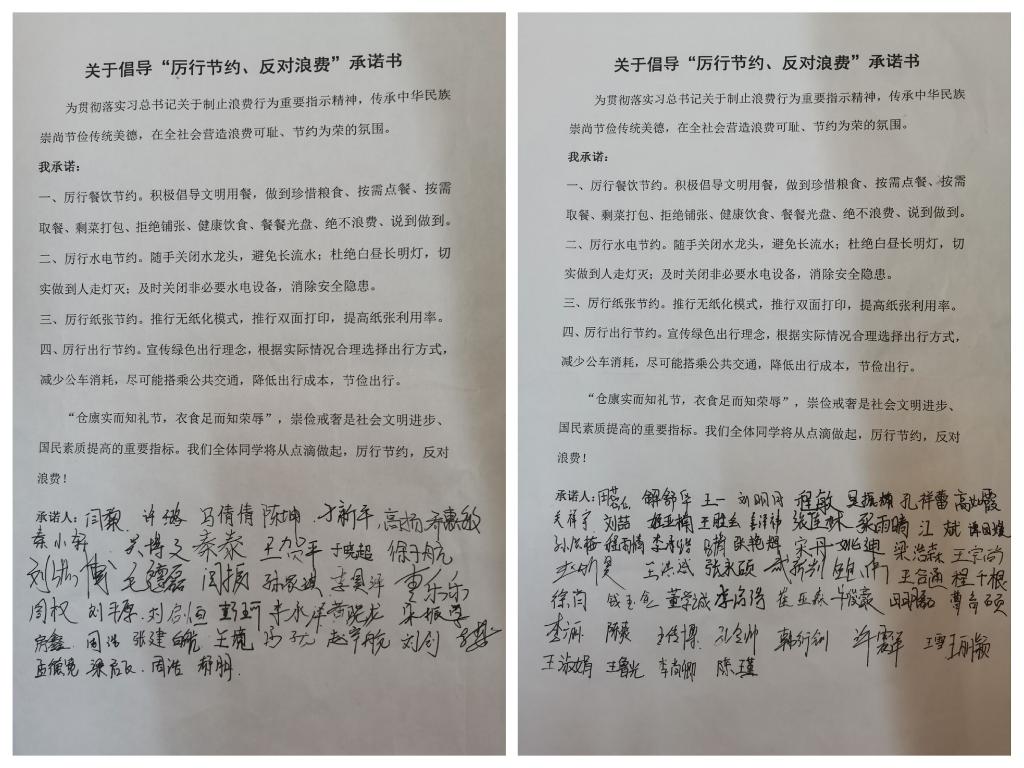 关于倡导“厉行节约、反对浪费”承诺书
为贯彻落实习总书记关于制止浪费行为重要指示精神，传承中华民族
崇尚节俭传统美德，在全社会营造浪费可耻、节约为荣的氛围。
我承诺：
一、厉行餐饮节约。积极倡导文明用餐，做到珍惜粮食、按需点餐、按需
取餐、剩菜打包、拒绝铺张、健康饮食、餐餐光盘、绝不浪费、说到做到。
二、厉行水电节约。随手关闭水龙头，避免长流水；杜绝白昼长明灯，切
实做到人走灯灭；及时关闭非必要水电设备，消除安全隐患。
三、厉行纸张节约。推行无纸化模式，推行双面打印，提高纸张利用率。
四、厉行出行节约。宣传绿色出行理念，根据实际情况合理选择出行方式，
减少公车消耗，尽可能搭乘公共交通，降低出行成本，节俭出行。
“仓廪实而知礼节，衣食足而知荣辱”，崇俭戒奢是社会文明进步、
国民素质提高的重要指标。我们全体同学将从点滴做起，厉行节约，反对
浪费！
承诺人：闫黎 马倩倩 陈坤 高杨
秦小轩 吴博文 秦泰 于晓超 徐子航
毛德磊 闫振
闫权 刘丰原 宋振学
房鑫 周浩 张建 刘创
梁启民 周浩
关于倡导“厉行节约、反对浪费”承诺书
为贯彻落实习总书记关于制止浪费行为重要指示精神，传承中华民族
崇尚节俭传统美德，在全社会营造浪费可耻、节约为荣的氛围。
我承诺：
一、厉行餐饮节约。积极倡导文明用餐，做到珍惜粮食、按需点餐、按需
取餐、剩菜打包、拒绝铺张、健康饮食、餐餐光盘、绝不浪费、说到做到。
二、厉行水电节约。随手关闭水龙头，避免长流水；杜绝白昼长明灯，切
实做到人走灯灭；及时关闭非必要水电设备，消除安全隐患。
三、厉行纸张节约。推行无纸化模式，推行双面打印，提高纸张利用率。
四、厉行出行节约。宣传绿色出行理念，根据实际情况合理选择出行方式，
减少公车消耗，尽可能搭乘公共交通，降低出行成本，节俭出行。
“仓廪实而知礼节，衣食足而知荣辱”，崇俭戒奢是社会文明进步、
国民素质提高的重要指标。我们全体同学将从点滴做起，厉行节约，反对
浪费！
承诺人： 解舒华 王一 刘明明 程敏 孔祥蕾
刘喆 梁雨晴 江斌
张艳辉 宋丹 姚迪 梁浩淼 王宗尚
王洪斌 张永硕 程千根
徐尚 董荣诚 曹奇硕
王传博 王雪 王丽颖
王淑娟 王鲁光 李尚卿 陈瑾